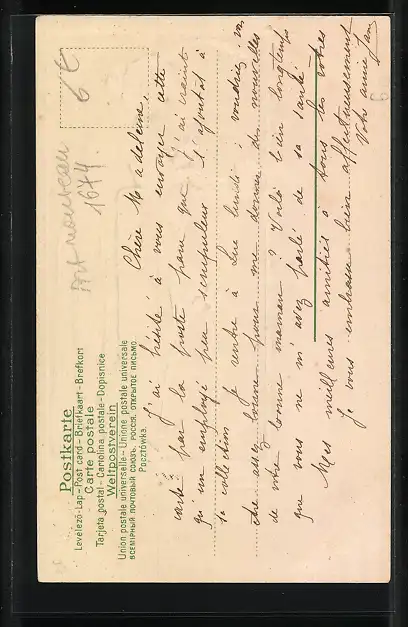 Postkarte
Levelező-Lap – Post card – Briefkaart – Brefkort
Carte postale
Tarjeta postal – Cartolina postale – Dopisnice
Weltpostverein
Union postale universelle – Unione postale universale
ВСЕМІРНЫЙ ПОЧТОВЫЙ СОЮЗЪ. РОССІЯ. ОТКРЫТОЕ ПИСЬМО
Pocztówka.
6 €
Art nouveau
1674
Chère Madeleine,
J'ai hésité à vous envoyer cette
carte par la poste parce que j'ai craint
qu'un employé peu scrupuleux l'ajoutât à
sa collection. Je rentre à lundi : voudriez vous
être assez bonne pour me donner des nouvelles
de votre bonne maman ? Voilà bien longtemps
que vous ne m'avez parlé de sa santé.
Mes meilleures amitiés à tous les vôtres
Je vous embrasse bien affectueusement
Votre amie